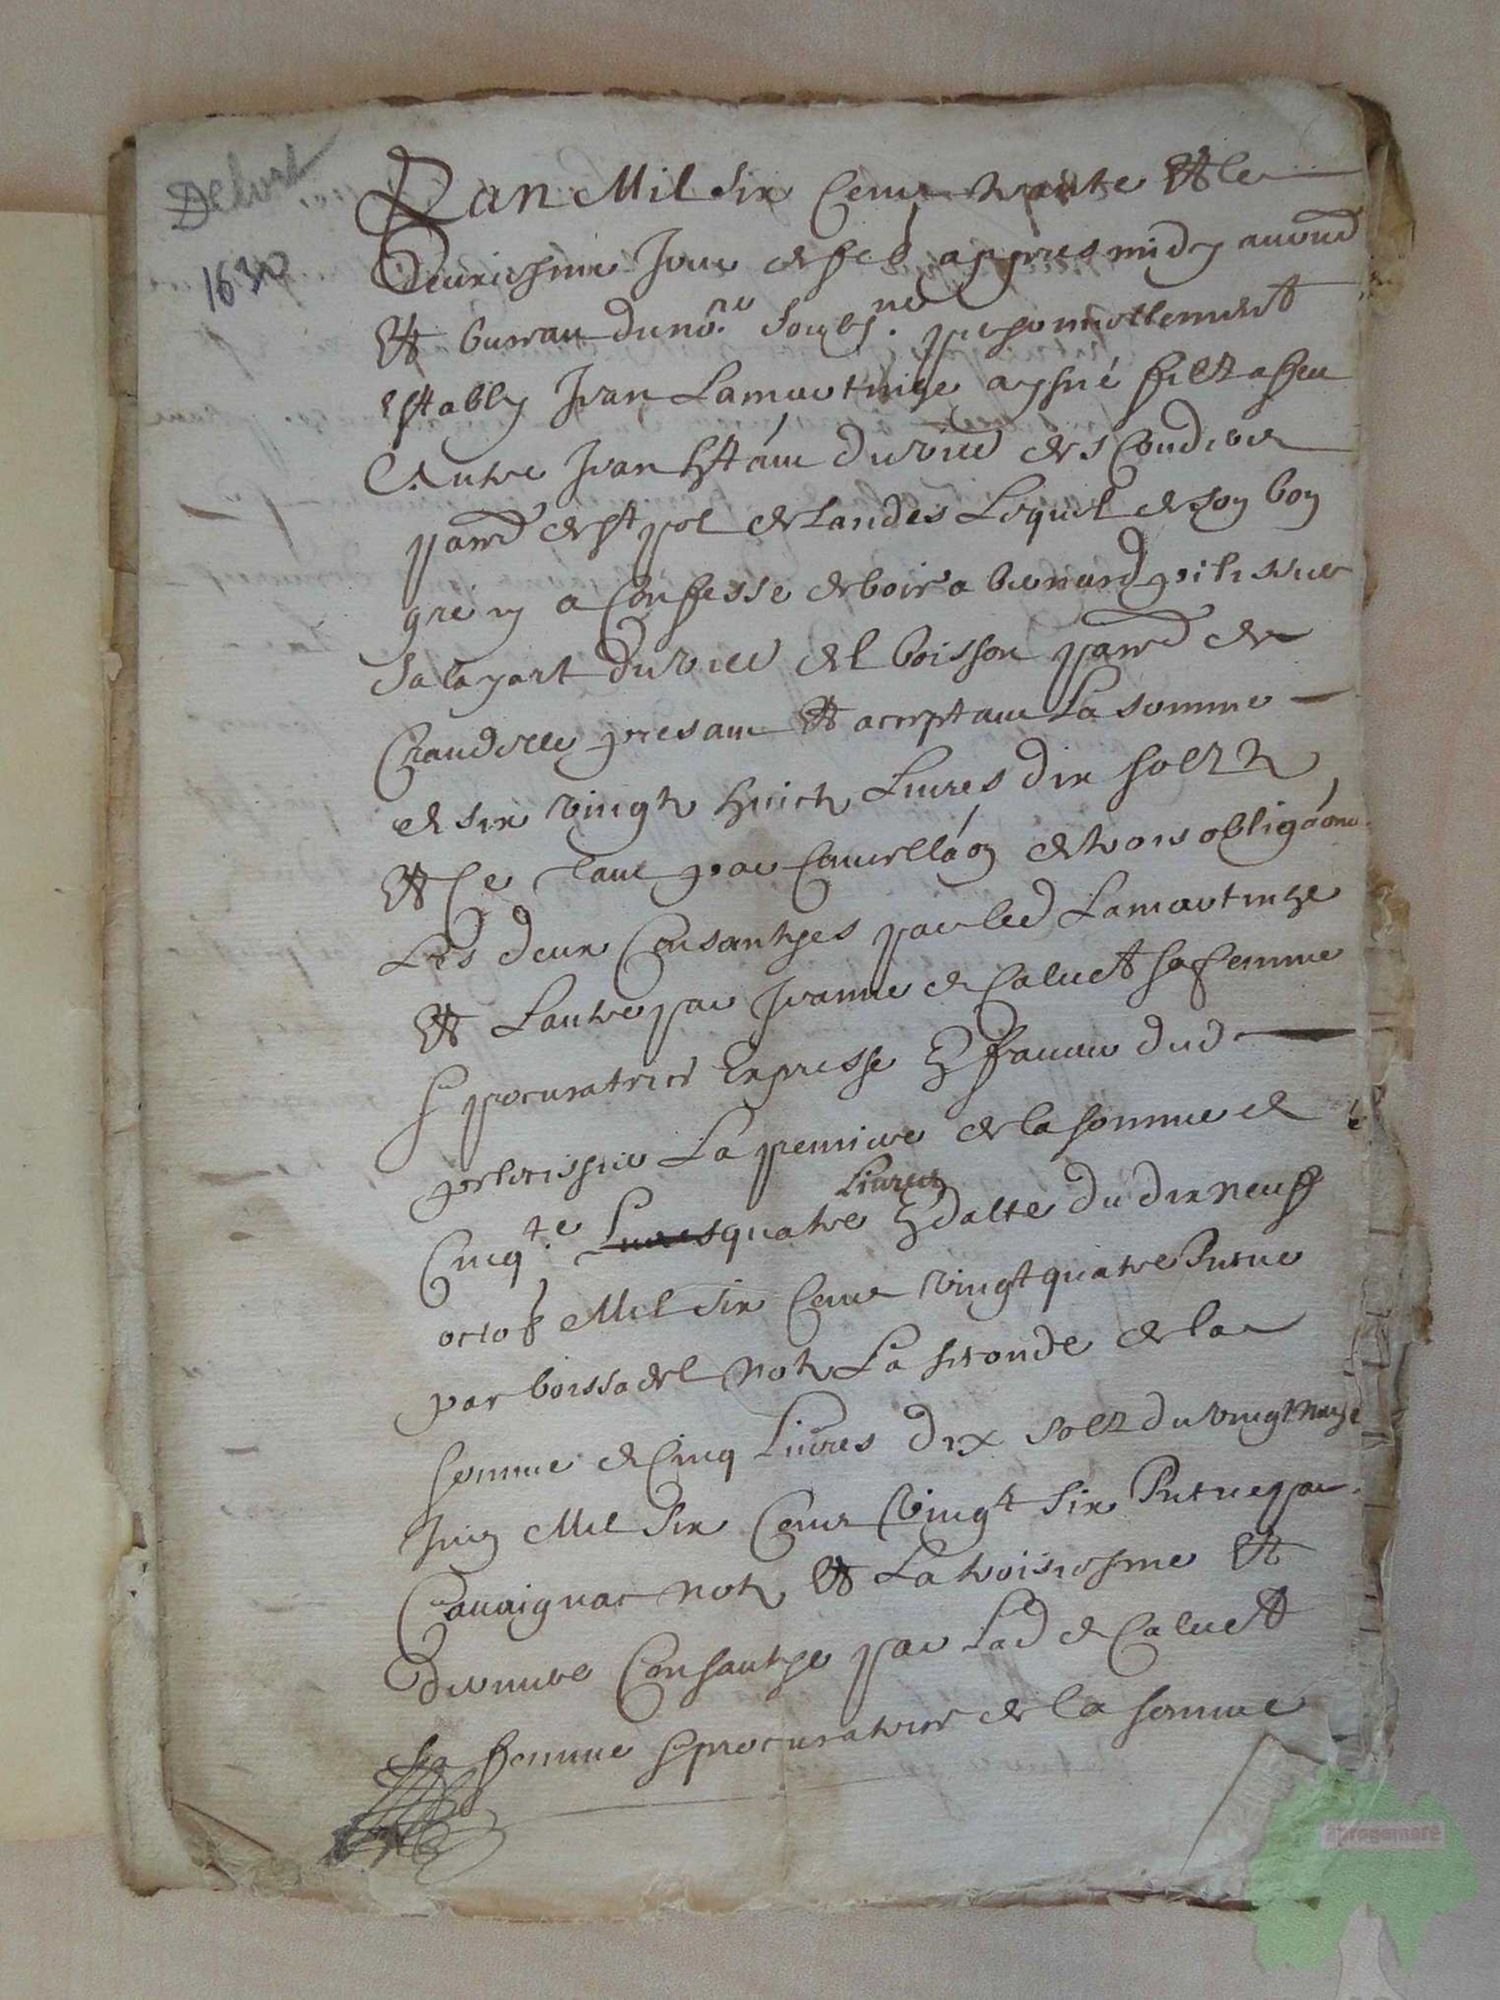 Delvert
1630
Lan Mil Six Cens trante Et le
Deuxiesme Jour de feb appres midy avond
Et bureau du no.re soubz.ne personnellement
Estably Jean Lamartinye aysné filz a feu
Autre Jean htánt du vill de s Coudiere
parr de St pol de Landes Lequel de son bon
gré y a Confesse debvoir a bernard
Salapart du vill del boisson parr de
presant Et aceptant La somme
de six vingtz huict Livres dix solz tz
Et Ce tant par Cancellaon de trois obligaóns
Les deux Consanties par led Lamartinye
Et Lautre par Jeanne de Calvet sa femme
sa procuratrice Expresse En faveur dud
La premiere de la somme de
Cinq.te Livres quatre Livres En datte du dix neuf
octob Mil Six Cens vingt quatre Retenue
par boissadel notr La seconde de la
somme de Cinq Livres dix solz du vingt
Juin Mil Six Cens Vingt Six Retenue par
Cavaignac notr Et La troisiesme Et
derniere Consantye par Lad de Calvet
Sa femme Sa procuratrice de la somme